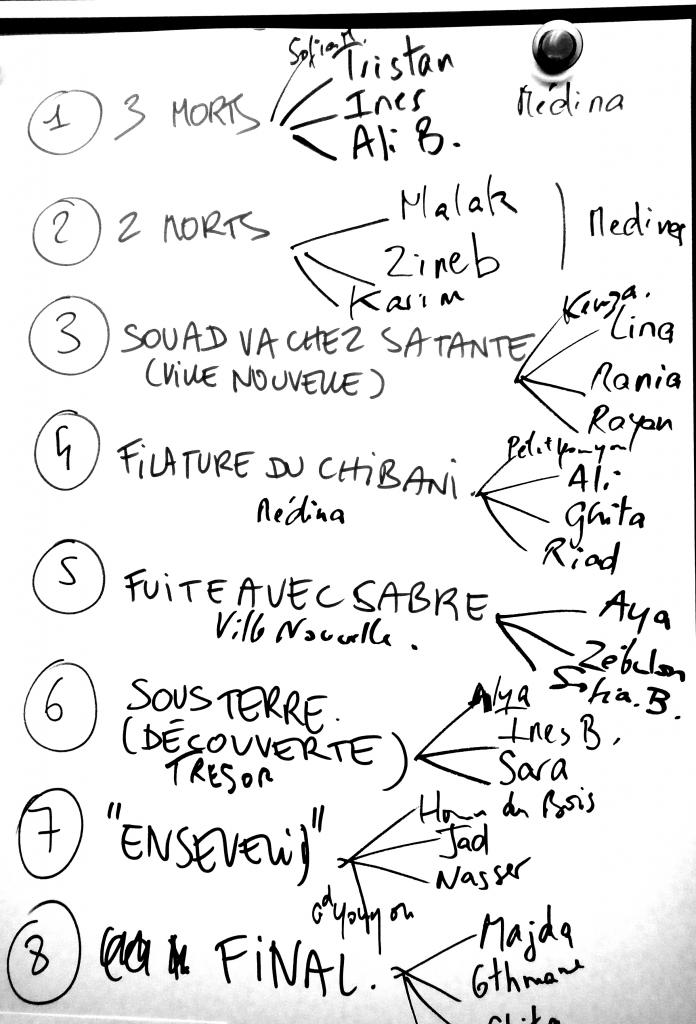 Sofia M.
Tristan
1 3 MORTS Ines Médina
Ali B.
2 2 MORTS Malak
Zineb
Karim
3 SOUAD VA CHEZ SA TANTE Kenza.
(VILLE NOUVELLE) Lina
Rania
Rayan
4 FILATURE DU CHIBANI. Petit
Médina Ali
Ghita
Riad
5 FUITE AVEC SABRE Aya
Ville Nouvelle. Zébulon
Sofia. B.
6 SOUS TERRE. Alya
(DÉCOUVERTE) Ines B.
TRESOR Sara
7 "ENSEVELI" du Bois
Jad
Nasser
8 FINAL. Majda
Othmane
Ghita